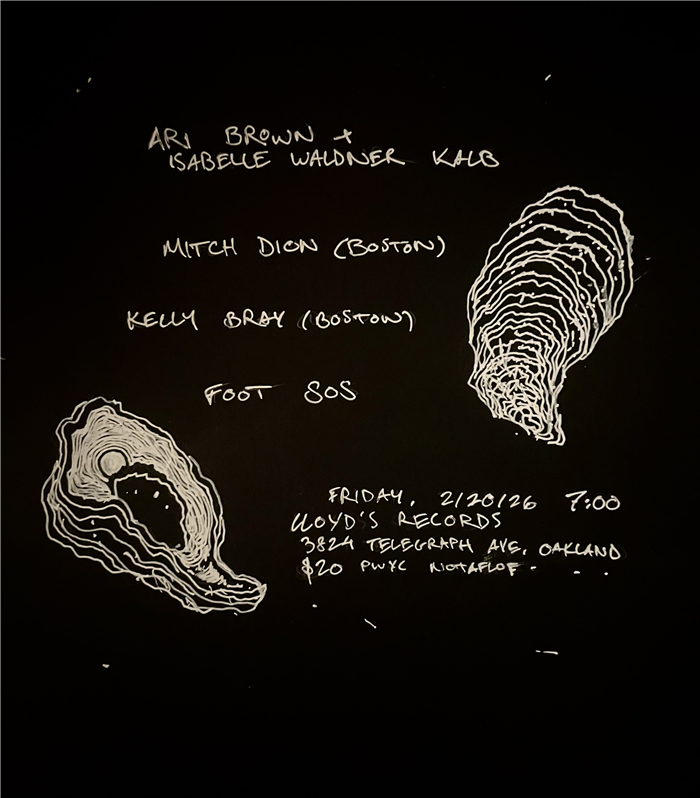 ARI BROWN +
ISABELLE WALDNER KALB
MITCH DION (BOSTON)
KELLY BRAY (BOSTON)
FOOT SOS
FRIDAY, 2/20/26 7:00
LLOYD'S RECORDS
3824 TELEGRAPH AVE, OAKLAND
$20 PWYC NOTAFLOF